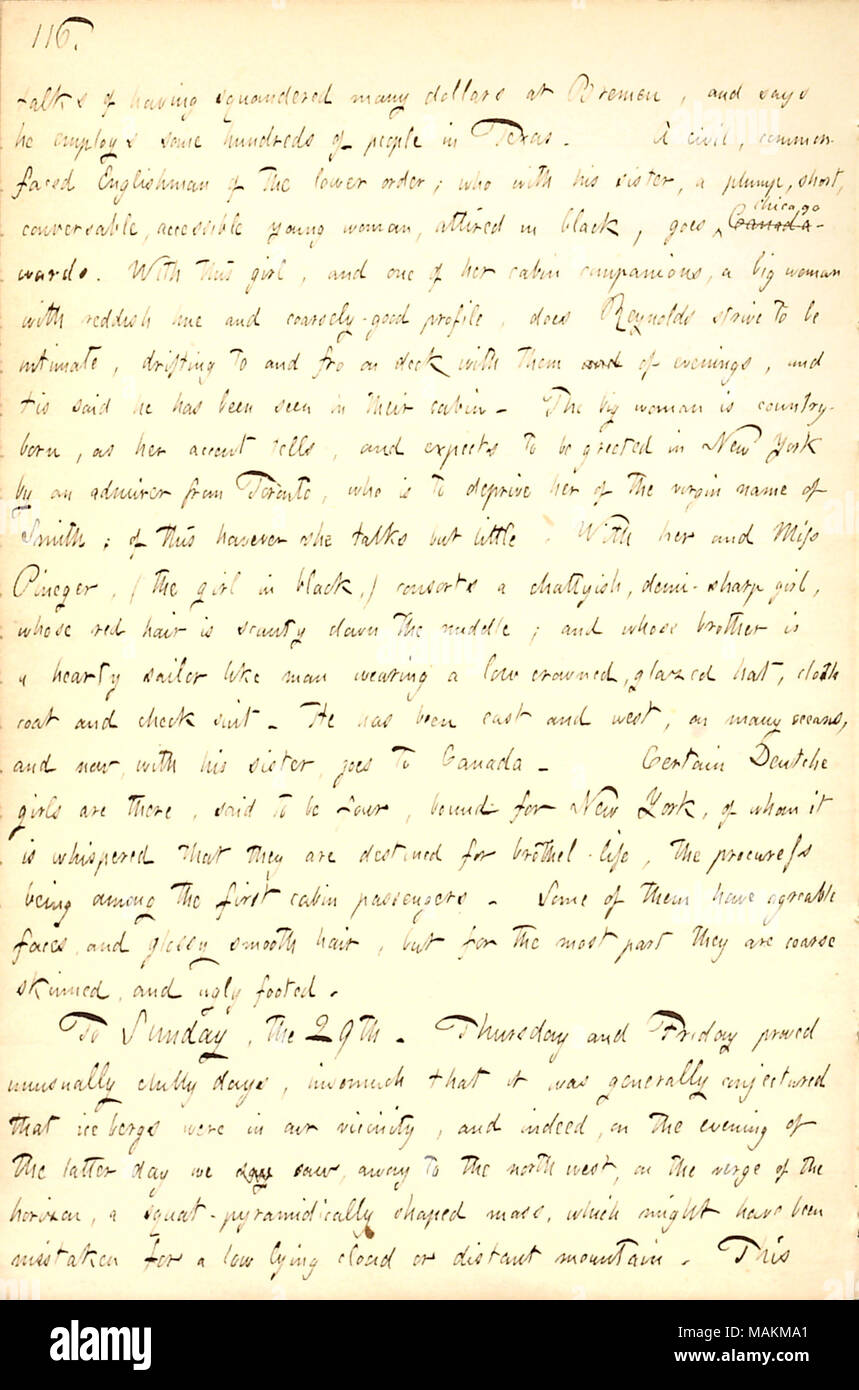 116.
talks of having squandered many dollars at Bremen, and says
he employs some hundreds of people in Texas. A civil, common-
faced Englishman of the lower order; who with his sister, a plump, short,
conversable, accessible young woman, attired in black, goes, chicago Canada-
wards. With this girl, and one of her cabin companions, a big woman
with reddish hue and coarsely-good profile, does Reynolds strive to be
intimate, drifting to and fro on deck with them and of evenings, and
tis said he has been seen in their cabin. The big woman is country-
born, as her accent tells, and expects to be greeted in New York
by an admirer from Toronto, who is to deprive her of the virgin name of
Smith; of this however she talks but little. With her and Miss
Pineger, (the girl in black,) consorts a chattyish, demi-sharp girl,
whose red hair is scanty down the middle; and whose brother is
a hearty sailor like man wearing a low crowned, glazed hat, cloth
coat and check suit. He has been east and west, on many oceans,
and now, with his sister, goes to Canada. Certain Deutche
girls are there, said to be four, bound for New York, of whom it
is whispered that they are destined for brothel-life, the procuress
being among the first cabin passengers. Some of them have agreable
faces, and glossy smooth hair, but for the most part they are coarse
skinned, and ugly footed.
To Sunday, the 29th. Thursday and Friday proved
unusually chilly days, insomuch that it was generally conjectured
that ice bergs were in our vicinity, and indeed, on the evening of
the latter day we say saw, away to the north west, on the verge of the
horizon, a squat-pyramidically shaped mass, which might have been
mistaken for a low lying cloud or distant mountain. This
alamy
Image ID: MAKMA1
www.alamy.com